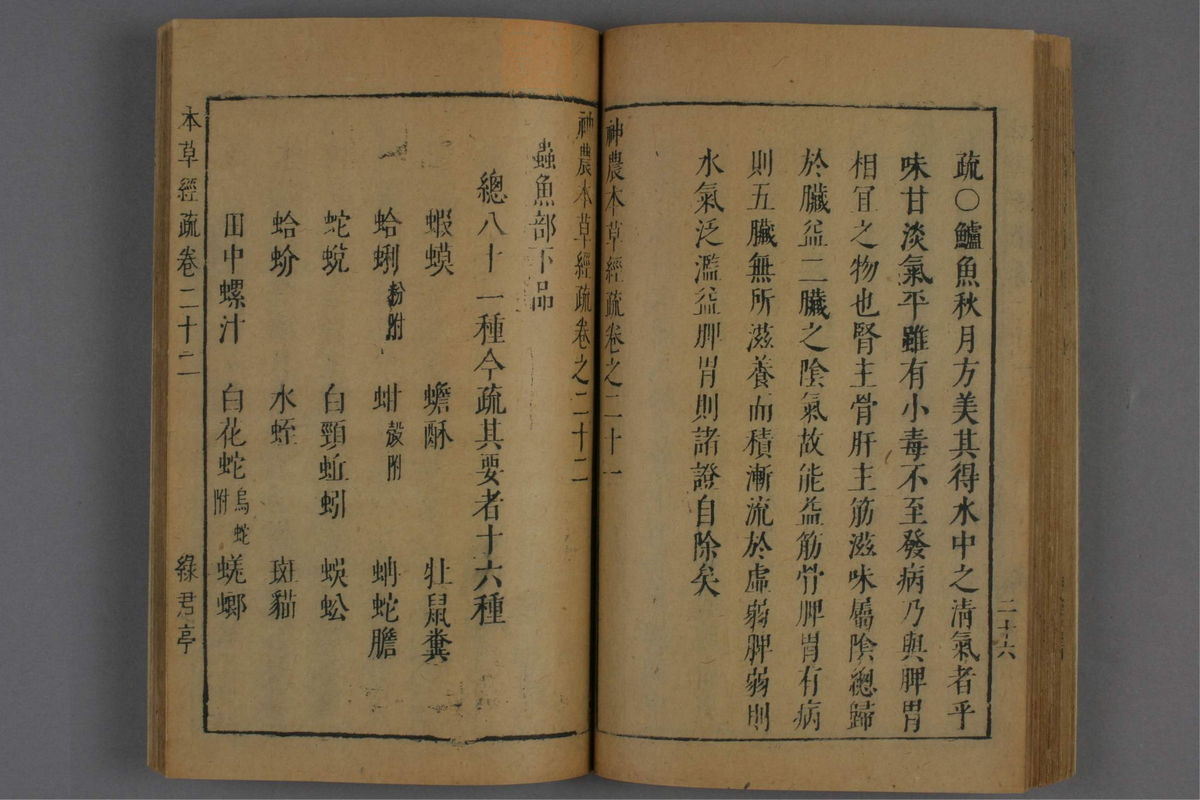 疏○鱸魚秋月方美其得水中之清氣者乎
味甘淡氣平雖有小毒不至發病乃與脾胃
相宜之物也腎主骨肝主筋滋味屬陰總歸
於臟益二臟之陰氣故能益筋骨脾胃有病
則五臟無所滋養而積漸流於虛弱脾弱則
水氣泛濫益脾胃則諸證自除矣
神農本草經疏卷之二十一
二十六
神農本草經疏卷之二十二
蟲魚部下品
總八十一種今疏其要者十六種
蝦蟆 蟾酥 牡鼠糞
蛤蜊粉附 蚶殼附 蚺蛇膽
蛇蛻 白頸蚯蚓 蜈蚣
蛤蚧 水蛭 斑貓
田中螺汁 白花蛇烏蛇附 蜣螂
本草經疏卷二十二 綠君亭